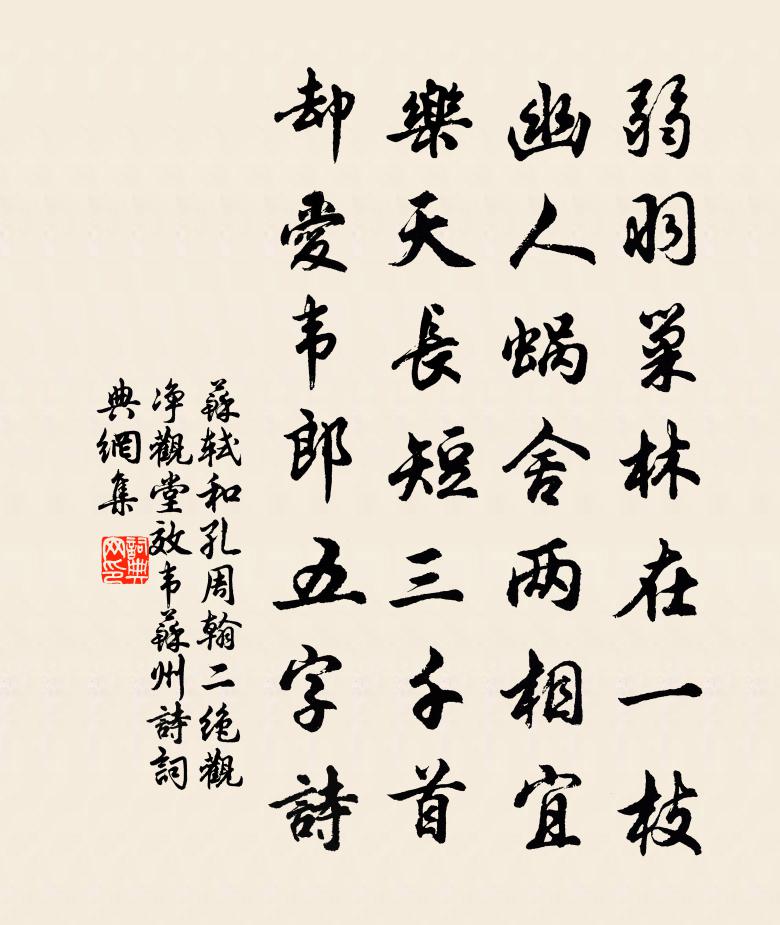 弱羽巢林在一枝
幽人蜗舍两相宜
樂天長短三千首
却愛韦郎五字詩
蘇轼和孔周翰二绝觀
净觀堂效韦蘇州詩詞
典網集
詞典
网印